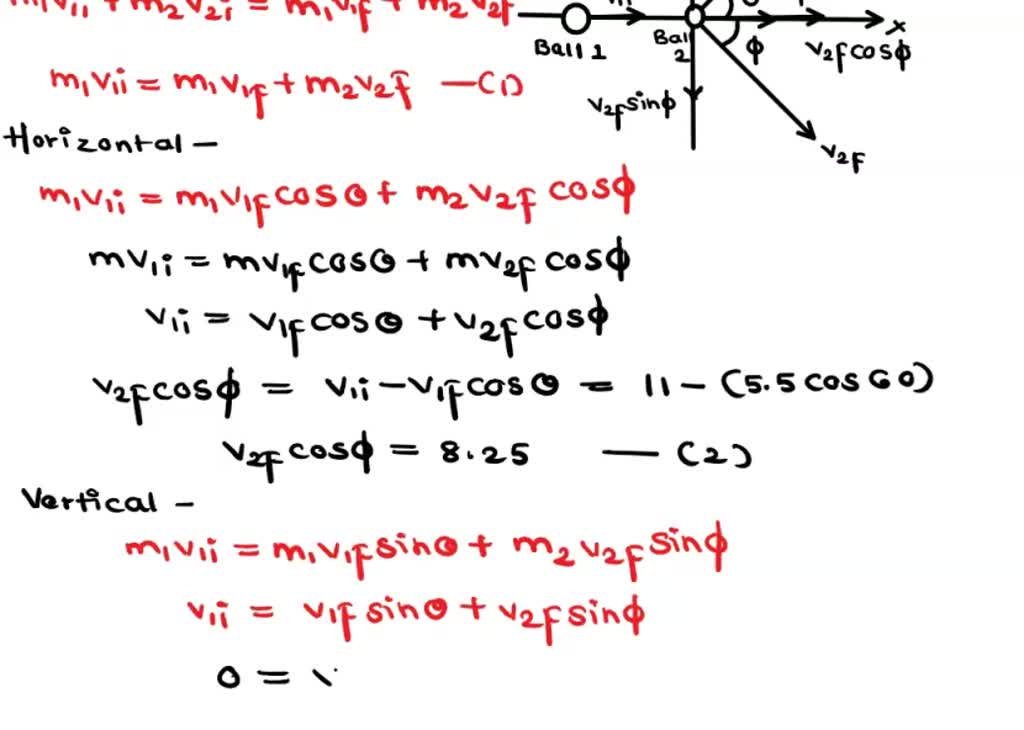 m₁v₁ᵢ + m₂v₂ᵢ = m₁v₁f + m₂v₂f
Ball 1
Ball 2
x
ϕ
v₂f cosϕ
v₂f sinϕ
v₂f
m₁v₁ᵢ = m₁v₁f + m₂v₂f —(1)
Horizontal –
m₁v₁ᵢ = m₁v₁f cosθ + m₂v₂f cosϕ
mv₁ᵢ = mv₁f cosθ + mv₂f cosϕ
v₁ᵢ = v₁f cosθ + v₂f cosϕ
v₂f cosϕ = v₁ᵢ – v₁f cosθ = 11 – (5.5 cos 60)
v₂f cosϕ = 8.25 — (2)
Vertical –
m₁v₁ᵢ = m₁v₁f sinθ + m₂v₂f sinϕ
v₁ᵢ = v₁f sinθ + v₂f sinϕ
0 =